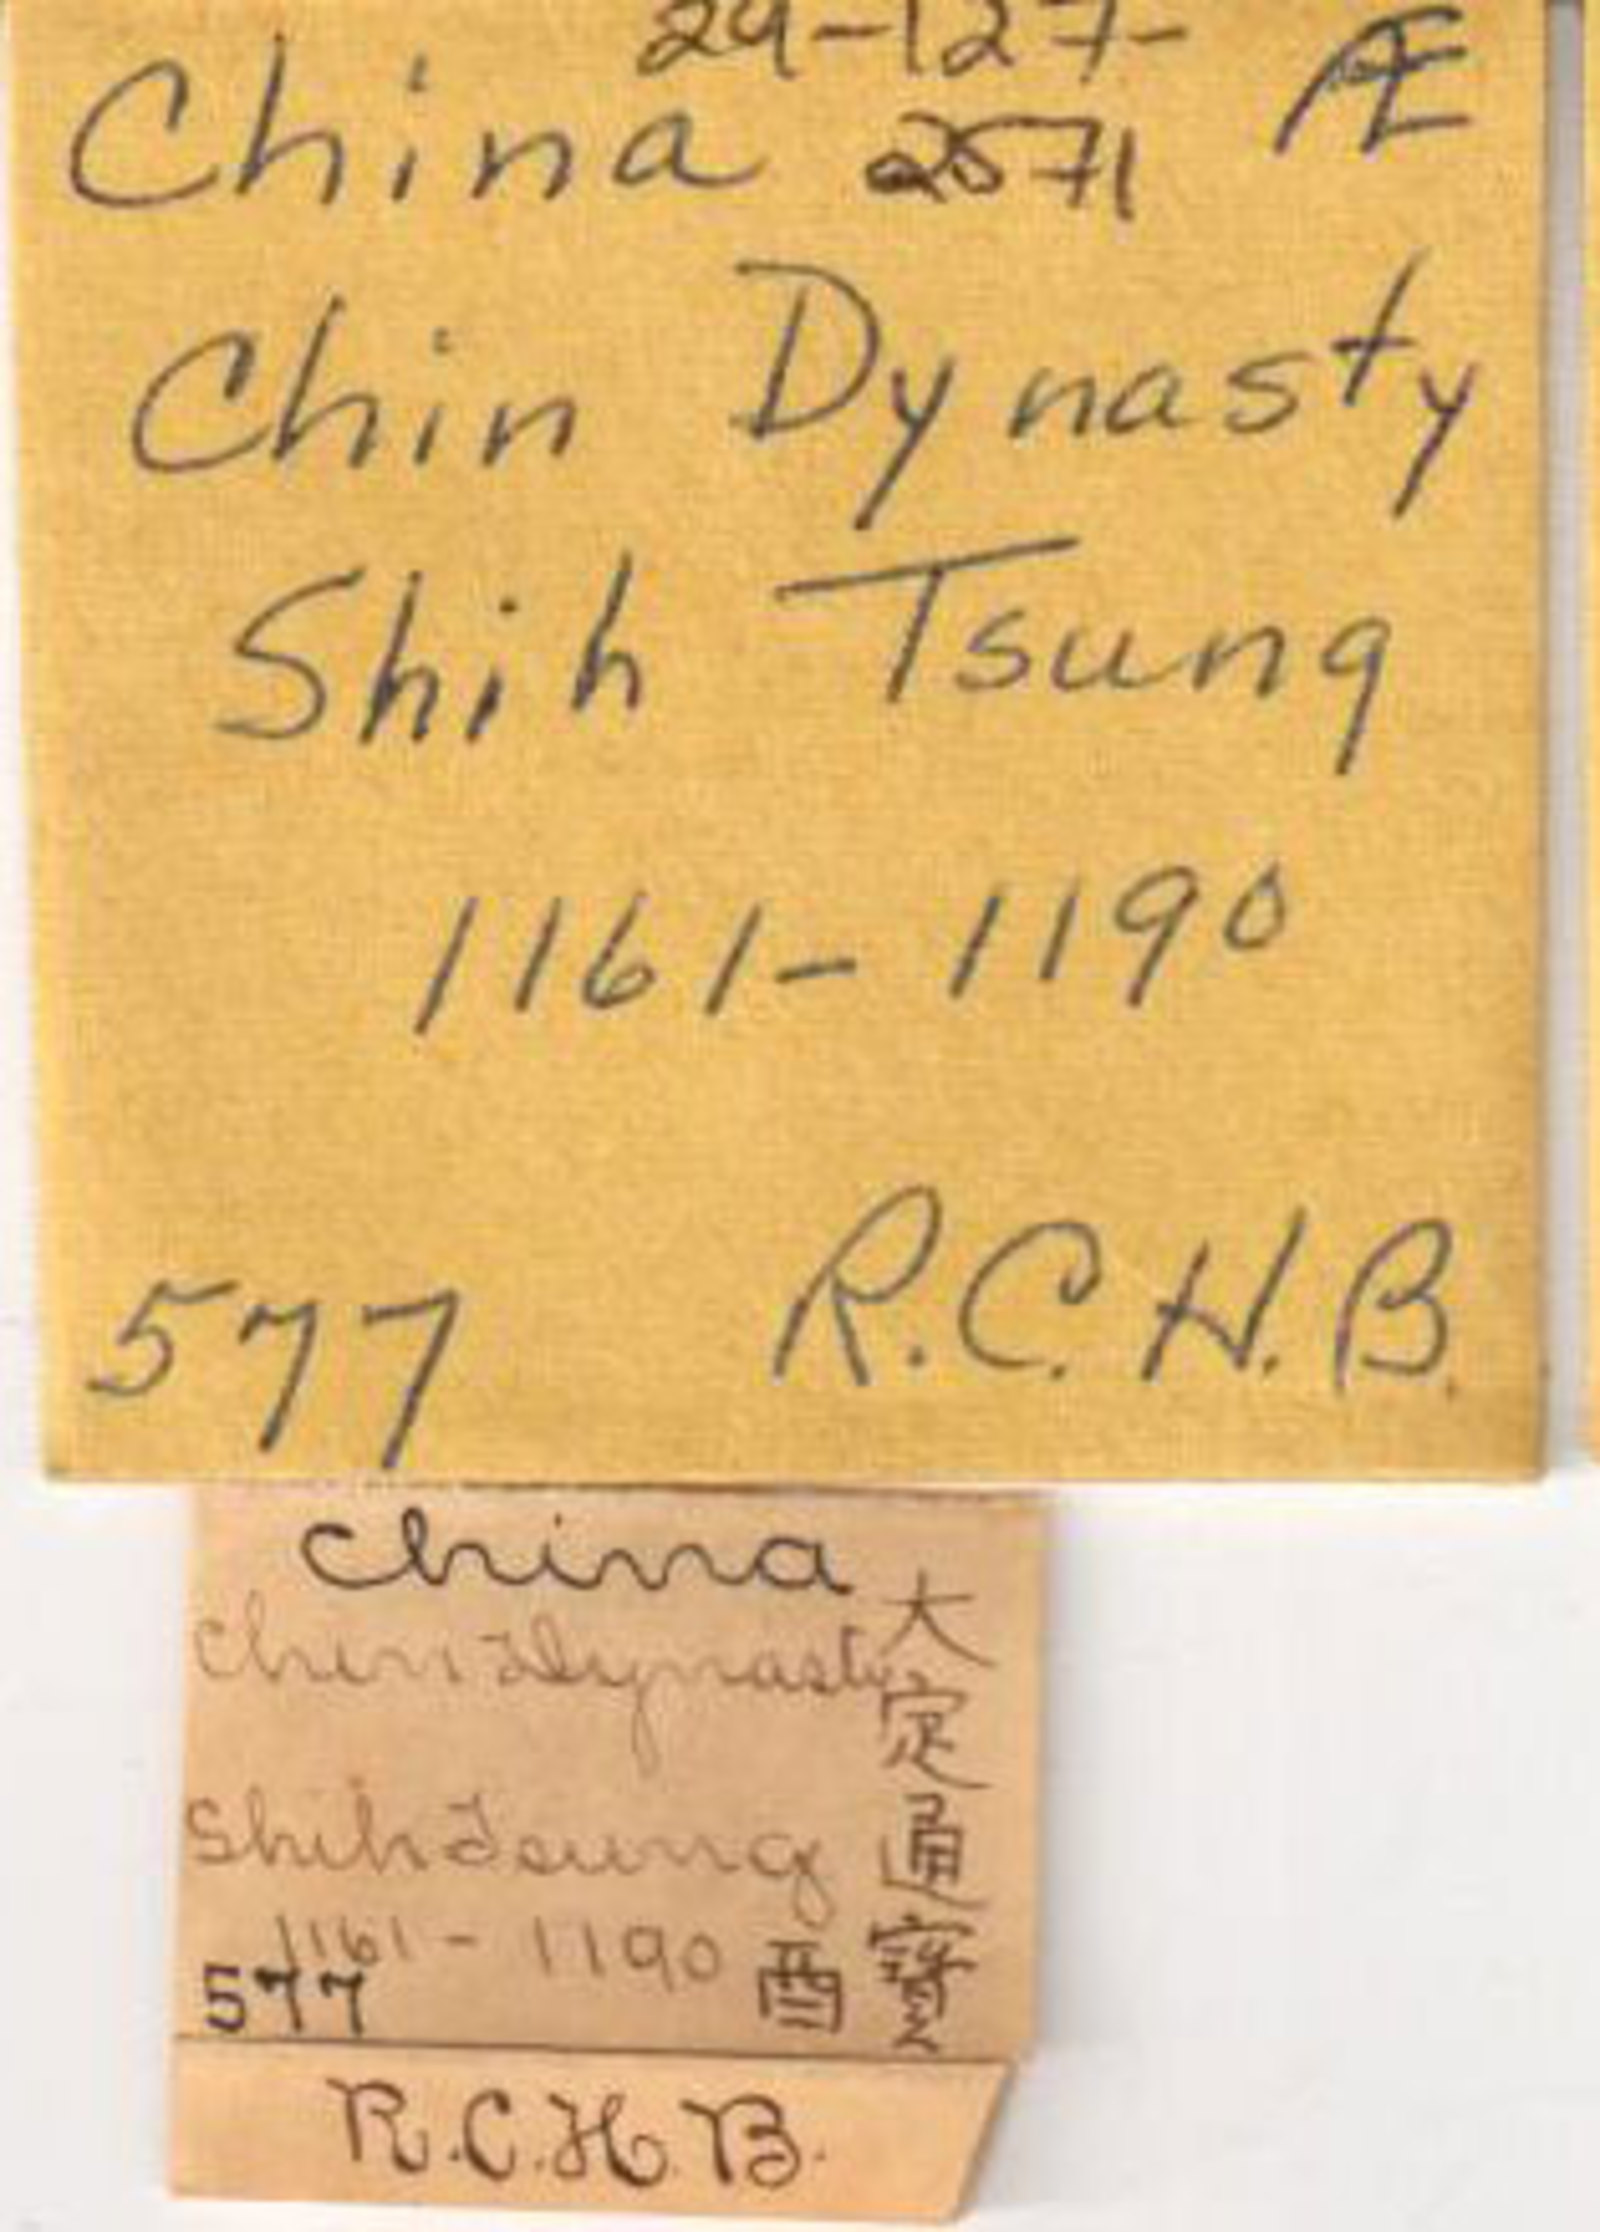 29-127-
China 2571 Æ
Chin Dynasty
Shih Tsung
1161-1190
577 R.C.H.B.
China
Chin Dynasty
Shih Tsung
1161-1190
577
大定通寶
酉
R.C.H.B.